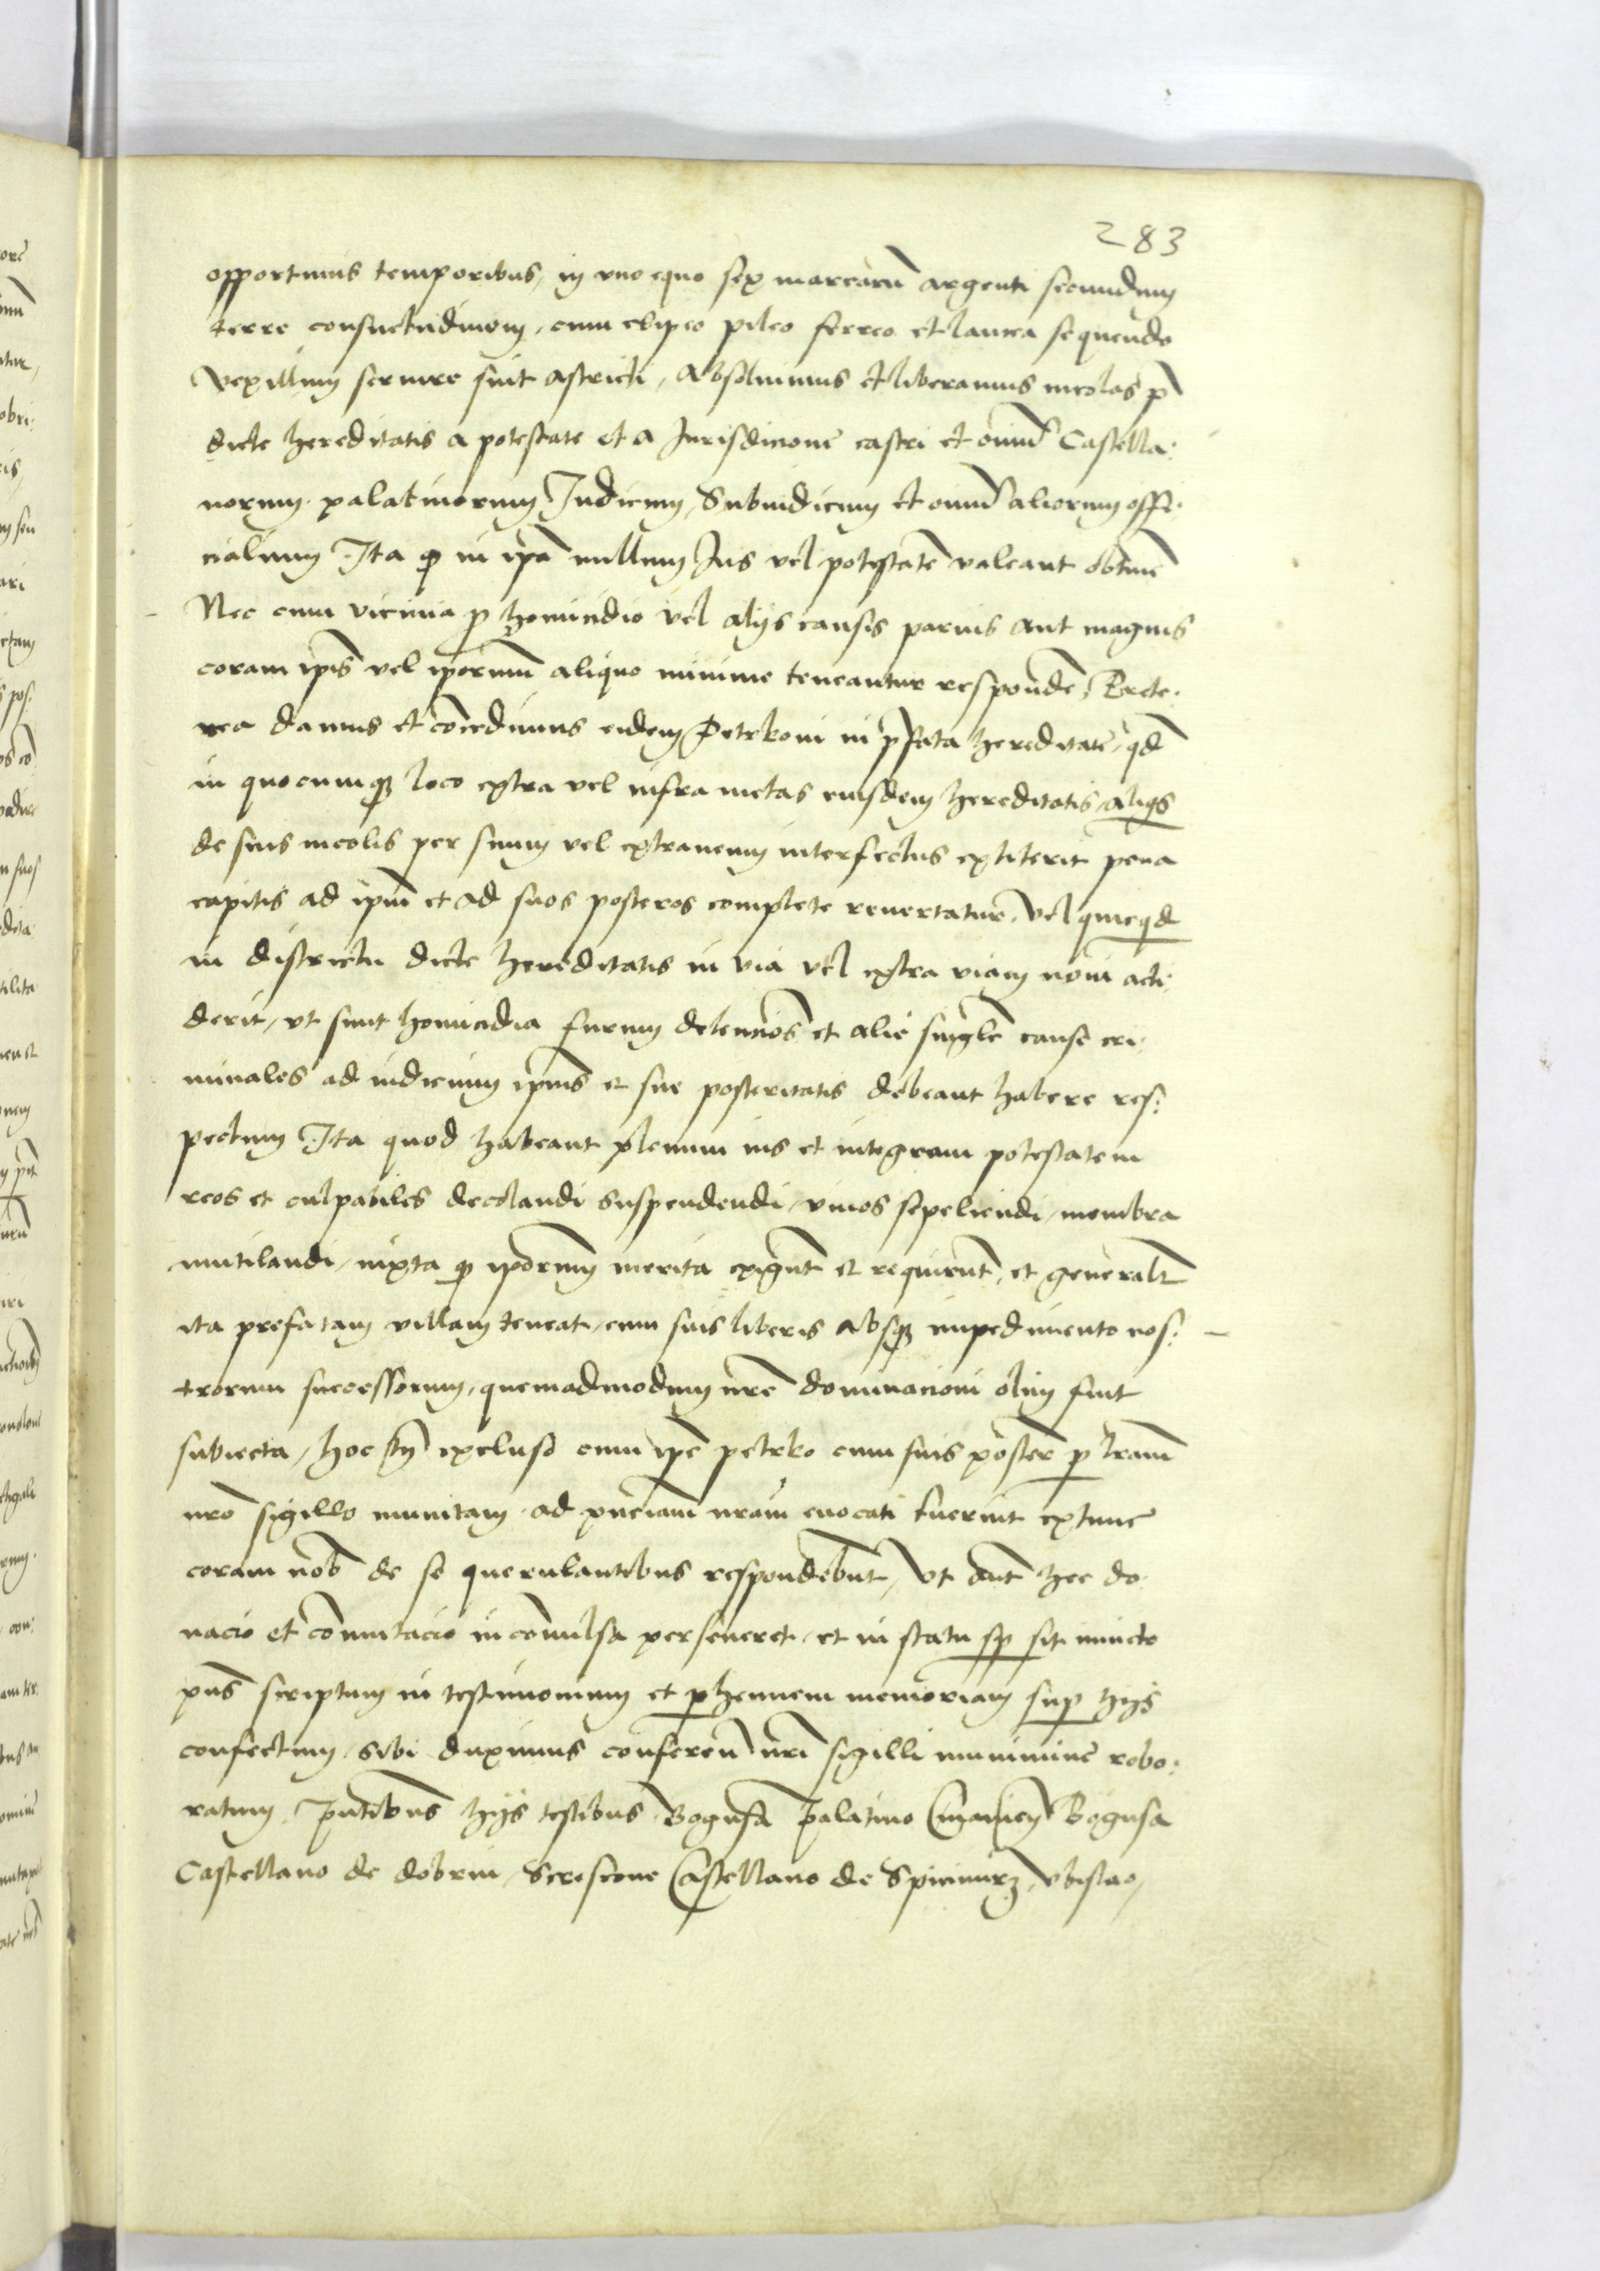 283
opportunis temporibus, in vno equo sex marcarũ argenti secundum
terre consuetudinem, cum clipeo pileo ferreo et lancea sequendo
Vexillum seruire sint astricti, Absoluimus et liberamus incolas p̄
dicte hereditatis a potestate et a Jurisdicione castri et oīm Castella:
norum palatinorum Judicum, Subiudicum et oīm aliorum offi:
cialium Ita ꝙ in ip̄a nullum Jus vel potestatē valeant obtinē
Nec cum vicinia ꝓ homicidio vel alijs causis paruis aut magnis
coram ip̄is vel ip̄orum aliquo minime teneantur respondē, Prete:
rea damus et concedimus eidem Petrkoni in p̄fata hereditatē, qd̄
in quocumqꝫ loco extra vel infra metas eiusdem hereditatis aliqs
de suis incolis per suum vel extraneum interfectus extiterit pena
capitis ad ip̄m et ad suos posteros complete reuertatur, Vel quicqd̄
in districtu dicte hereditatis in via vel extra viam noui acci:
derit, vt sunt homicidia furum detencōes et alie singlē cause cri:
minales ad iudicium ip̄ius et sue posteritatis debeant habere res:
pectum Ita quod habeant plenum ius et integram potestatem
reos et culpabiles decolandi suspendendi, viuos sepeliendi, membra
mutilandi, iuxta ꝙ ip̄orum merita exigūt et requirūt, et generalr̄
ita prefatam villam teneat, cum suis liberis absqꝫ impedimento nos:
trorum successorum, quemadmodum nr̄e dominacioni olim fuit
subiecta, hoc tn̄ excluso cum ip̄e petrko cum suis posterē ꝑ lr̄am
nr̄o sigillo munitam ad pn̄ciam nr̄am euocati fuerint extunc
coram nob̄ de se querulantibus respondebūt, Vt aūt hec do:
nacio et cōmutacio inconuulsa perseueret, et in statu sp̄ sit inuicto
pn̄s scriptum in testimonium et ꝑhennem memoriam suꝑ hijs
confectum, sibi duximus conferen̄ nr̄i sigilli munimine robo:
ratum, Pn̄tibus hijs testibus Bogusa Palatino Bogusa
Castellano de dobrin, Scriscone Castellano de Spicimirz, vbislao,